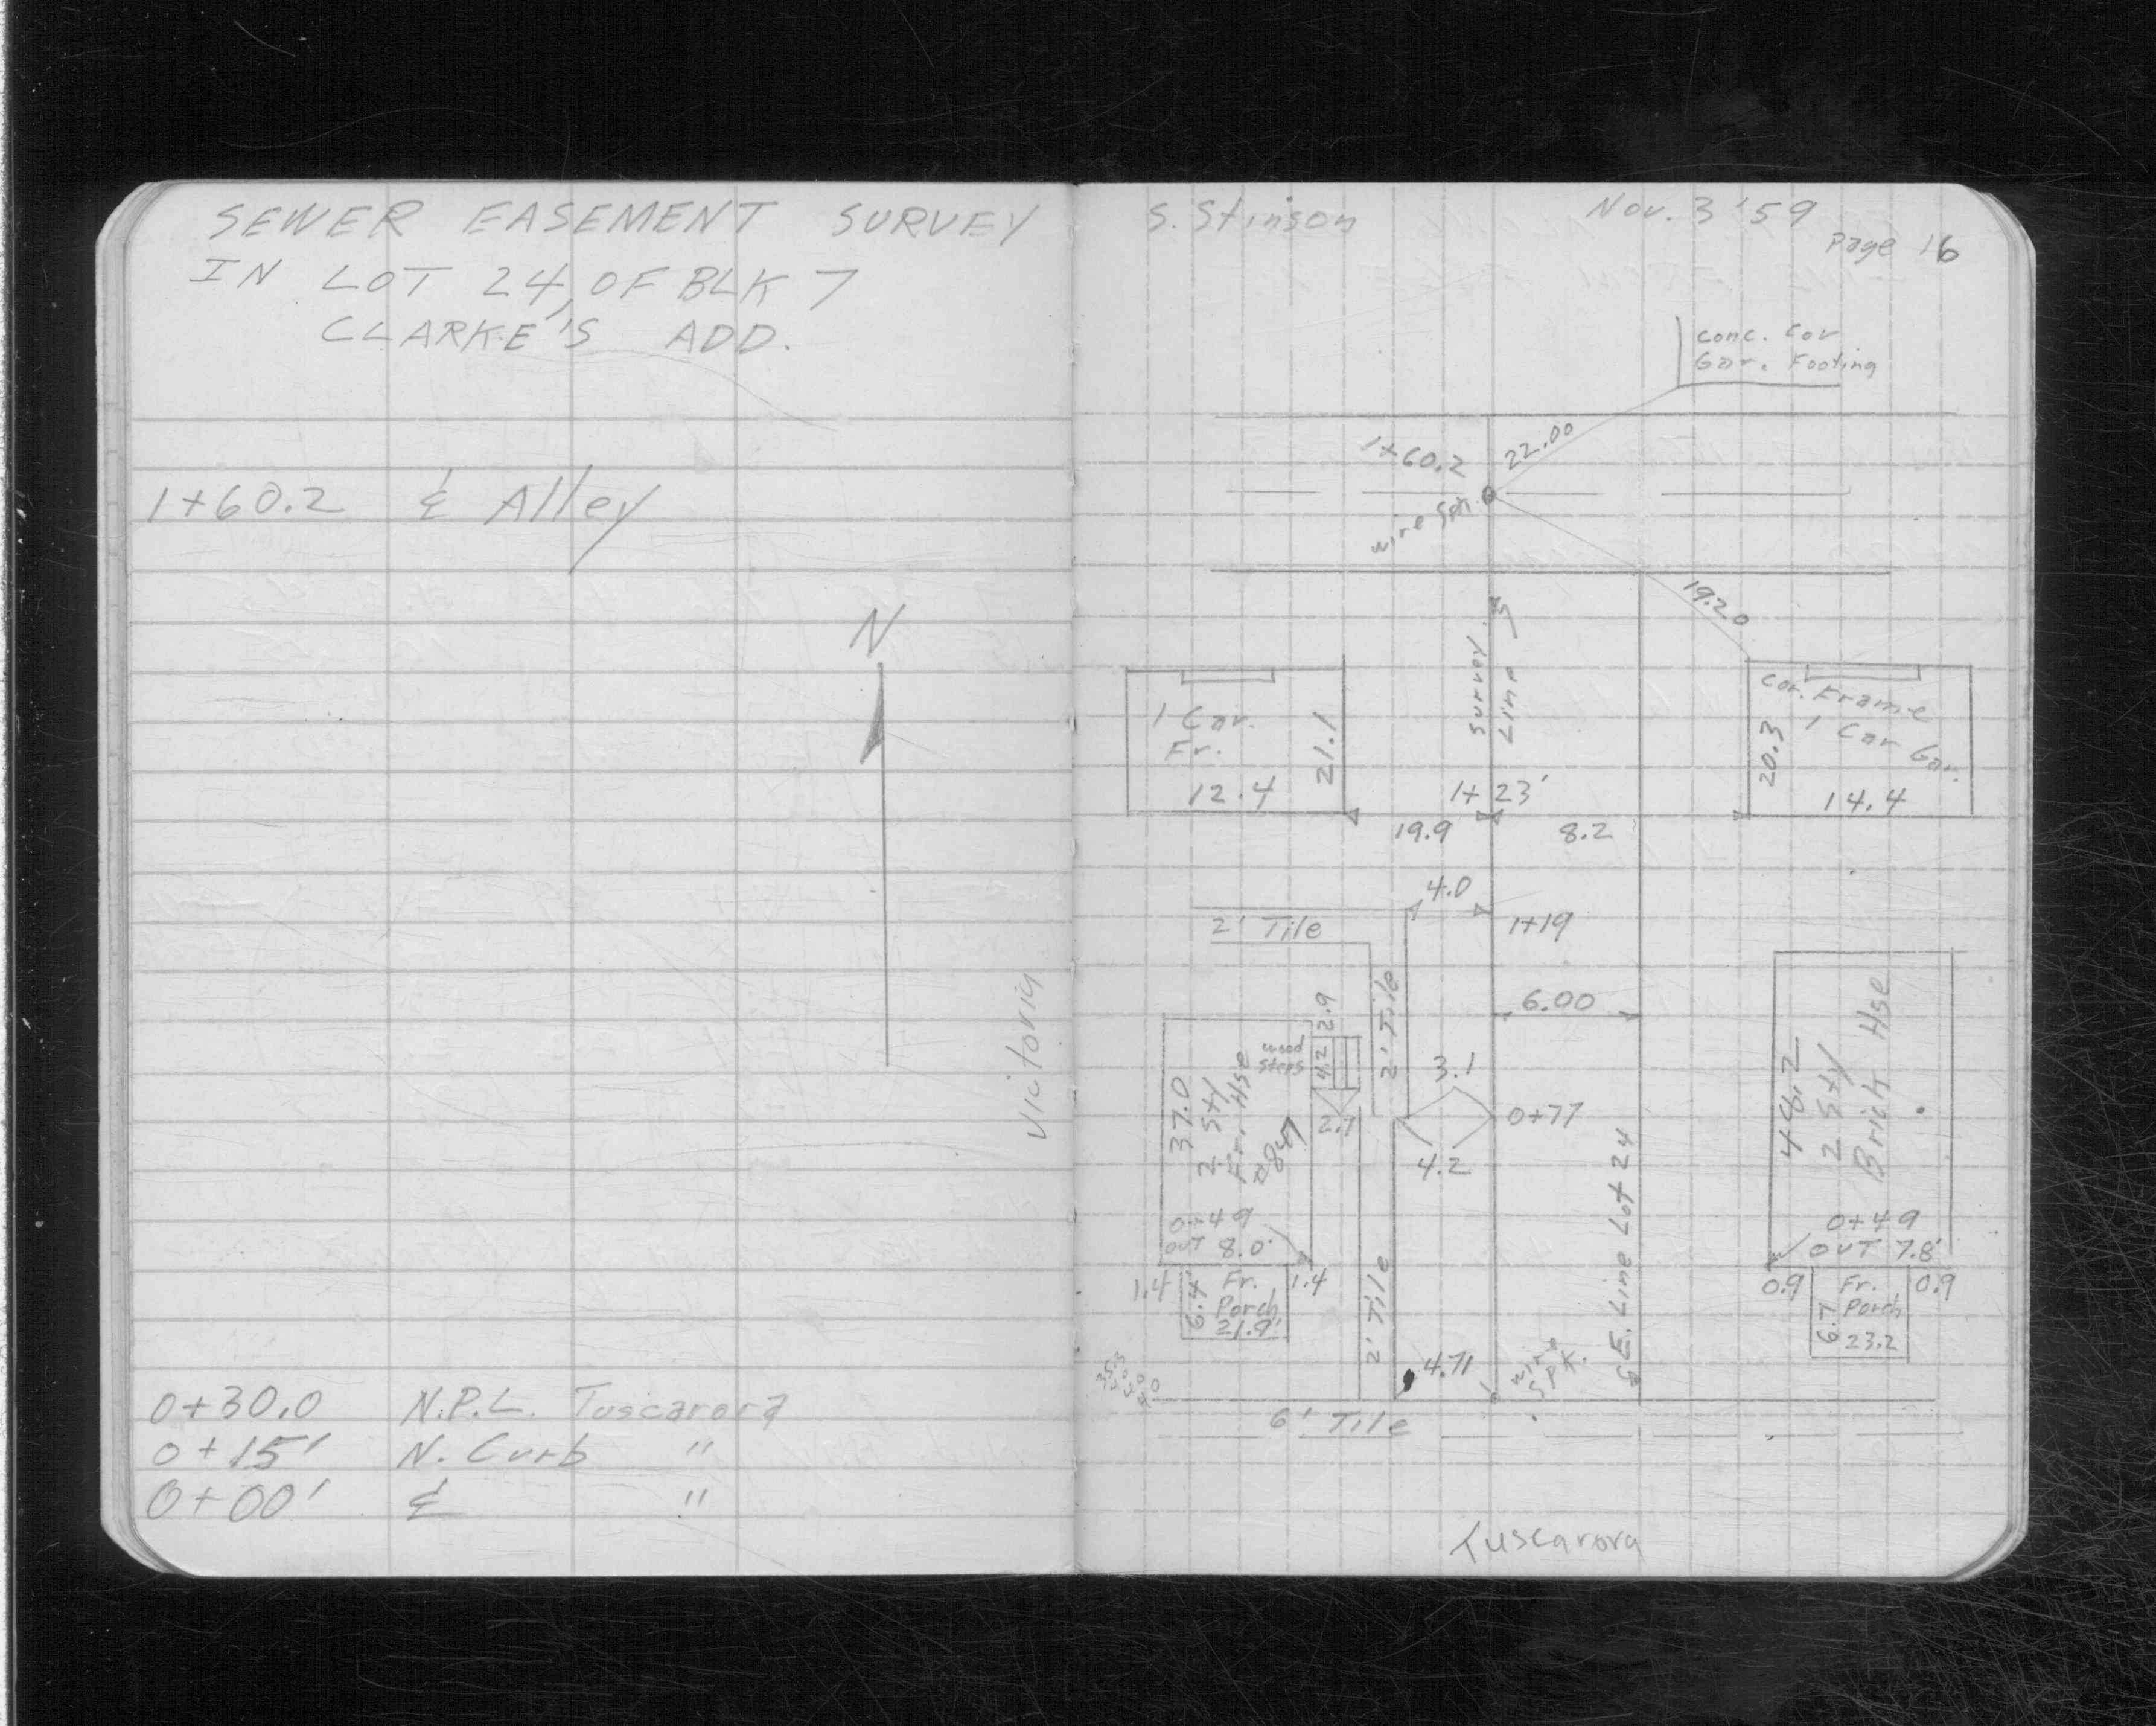 SEWER EASEMENT SURVEY
IN LOT 24, OF BLK 7
CLARKE'S ADD.
1+60.2 ℄ Alley
N
Victoria
0+30.0 N.P.L. Tuscarora
0+15' N. Curb "
0+00' ℄ "
S. Stinson
Nov. 3 '59
Page 16
Conc. Cor
Gar. Footing
1+60.2
22.00
wire Spk.
19.20
Survey
Line
1 Car.
Fr.
21.1
12.4
Cor. Frame
1 Car Gar.
20.3
14.4
1+23'
19.9
8.2
4.0
2' Tile
1+19
2' Tile
6.00
2.9
wood
Steps
4.2
3.1
37.0
2 Sty
Fr. Hse
2.7
0+77
4.2
48.2
2 Sty
Brick Hse
E. Line Lot 24
0+49
OUT 8.0'
0+49
OUT 7.8'
1.4
6.4'
Fr.
Porch
21.9'
1.4
2' Tile
0.9
6.7
Fr.
Porch
23.2
0.9
4.71
wire
SPK.
6' Tile
Tuscarora